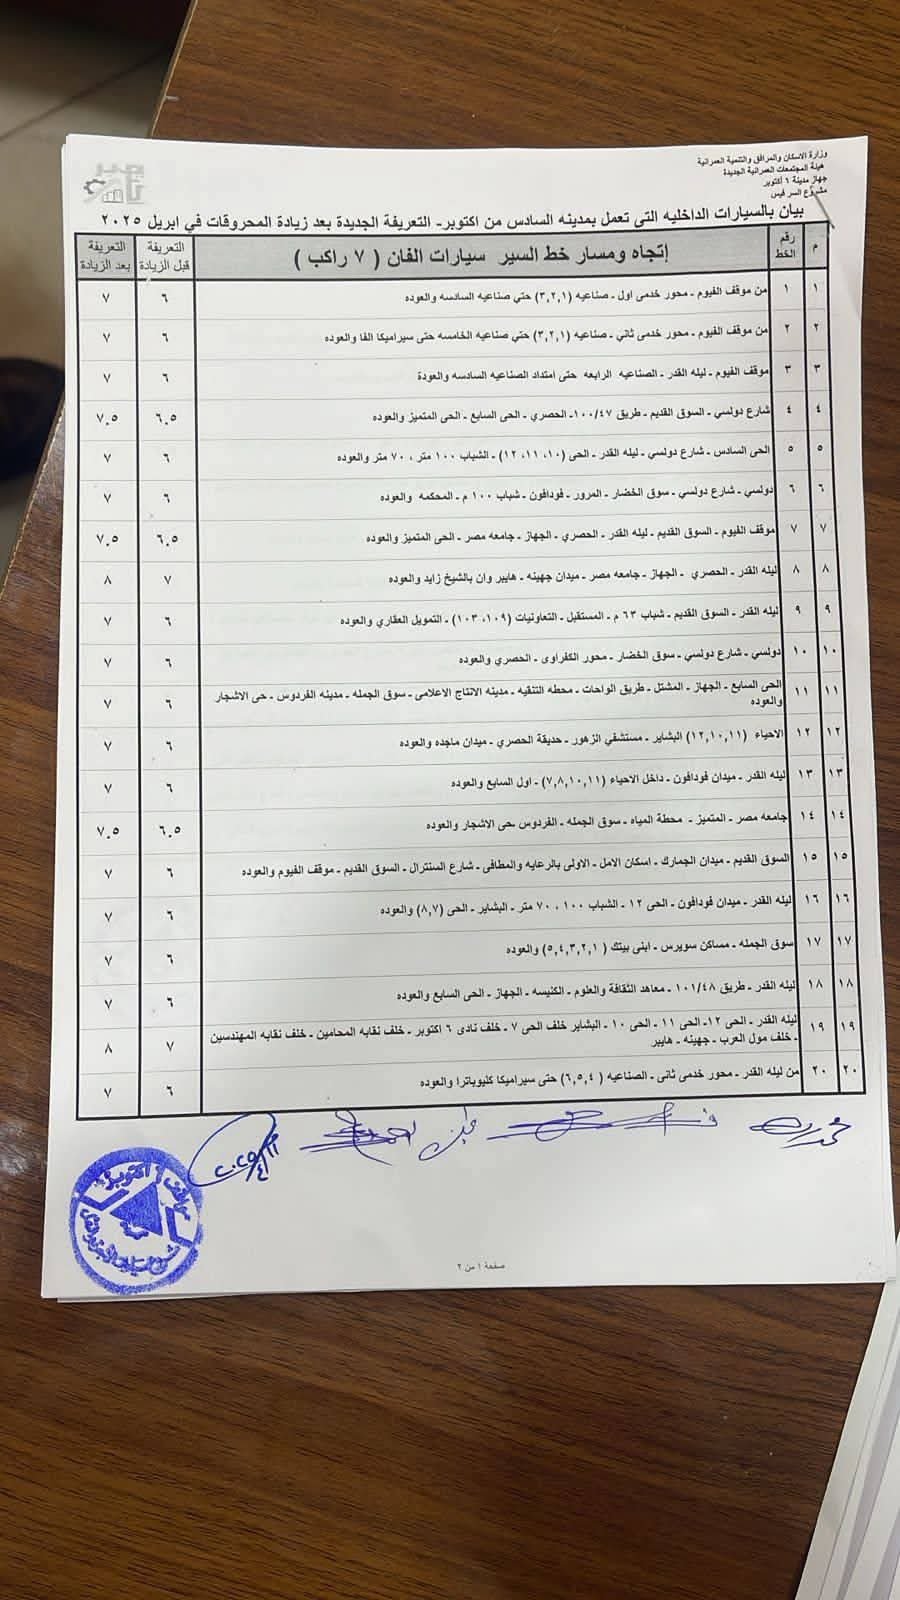 وزارة الاسكان والمرافق والتنمية العمرانية
هيئة المجتمعات العمرانية الجديدة
جهاز مدينة ٦ أكتوبر
مشروع السرفيس
بيان بالسيارات الداخليه التى تعمل بمدينه السادس من اكتوبر- التعريفة الجديدة بعد زيادة المحروقات في ابريل ٢٠٢٥
م | رقم الخط | إتجاه ومسار خط السير سيارات الفان ( ٧ راكب ) | التعريفة قبل الزيادة | التعريفة بعد الزيادة
١ | ١ | من موقف الفيوم - محور خدمى اول - صناعيه (٣,٢,١) حتي صناعيه السادسه والعوده | ٦ | ٧
٢ | ٢ | من موقف الفيوم - محور خدمى ثاني - صناعيه (٣,٢,١) حتي صناعيه الخامسه حتى سيراميكا الفا والعوده | ٦ | ٧
٣ | ٣ | موقف الفيوم - ليله القدر - الصناعيه الرابعه حتى امتداد الصناعيه السادسه والعودة | ٦ | ٧
٤ | ٤ | شارع دولسي - السوق القديم - طريق ١٠٠/٤٧- الحصري - الحى السابع - الحى المتميز والعوده | ٦.٥ | ٧.٥
٥ | ٥ | الحى السادس - شارع دولسي - ليله القدر - الحى (١٠، ١١، ١٢) - الشباب ١٠٠ متر ، ٧٠ متر والعوده | ٦ | ٧
٦ | ٦ | دولسي - شارع دولسي - سوق الخضار - المرور - فودافون - شباب ١٠٠ م - المحكمه والعوده | ٦ | ٧
٧ | ٧ | موقف الفيوم - السوق القديم - ليله القدر - الحصري - الجهاز - جامعه مصر - الحى المتميز والعوده | ٦.٥ | ٧.٥
٨ | ٨ | ليله القدر - الحصري - الجهاز - جامعه مصر - ميدان جهينه - هايبر وان بالشيخ زايد والعوده | ٧ | ٨
٩ | ٩ | ليله القدر - السوق القديم - شباب ٦٣ م - المستقبل - التعاونيات (١٠٩، ١٠٣) - التمويل العقاري والعوده | ٦ | ٧
١٠ | ١٠ | دولسي - شارع دولسي - سوق الخضار - محور الكفراوى - الحصري والعوده | ٦ | ٧
١١ | ١١ | الحى السابع - الجهاز - المشتل - طريق الواحات - محطه التنقيه - مدينه الانتاج الاعلامى - سوق الجمله - مدينه الفردوس - حى الاشجار
والعوده | ٦ | ٧
١٢ | ١٢ | الاحياء (١٢,١٠,١١) البشاير - مستشفي الزهور - حديقة الحصري - ميدان ماجده والعوده | ٦ | ٧
١٣ | ١٣ | ليله القدر - ميدان فودافون - داخل الاحياء (٧,٨,١٠,١١) - اول السابع والعوده | ٦ | ٧
١٤ | ١٤ | جامعه مصر - المتميز - محطة المياه - سوق الجمله - الفردوس -حى الاشجار والعوده | ٦.٥ | ٧.٥
١٥ | ١٥ | السوق القديم - ميدان الجمارك - اسكان الامل - الاولى بالرعايه والمطافى - شارع السنترال - السوق القديم - موقف الفيوم والعوده | ٦ | ٧
١٦ | ١٦ | ليله القدر - ميدان فودافون - الحى ١٢ - الشباب ١٠٠ ، ٧٠ متر - البشاير - الحى (٨,٧) والعوده | ٦ | ٧
١٧ | ١٧ | سوق الجمله - مساكن سويرس - ابنى بيتك ( ٥,٤,٣,٢,١) والعوده | ٦ | ٧
١٨ | ١٨ | ليله القدر - طريق ١٠١/٤٨ - معاهد الثقافة والعلوم - الكنيسه - الجهاز - الحى السابع والعوده | ٦ | ٧
١٩ | ١٩ | ليله القدر - الحى ١٢- الحى ١١ - الحى ١٠ - البشاير خلف الحى ٧ - خلف نادى ٦ اكتوبر - خلف نقابه المحامين - خلف نقابه المهندسين
- خلف مول العرب - جهينه - هايبر | ٧ | ٨
٢٠ | ٢٠ | من ليله القدر - محور خدمى ثانى - الصناعيه ( ٦,٥,٤) حتى سيراميكا كليوباترا والعوده | ٦ | ٧
صفحة ١ من ٢